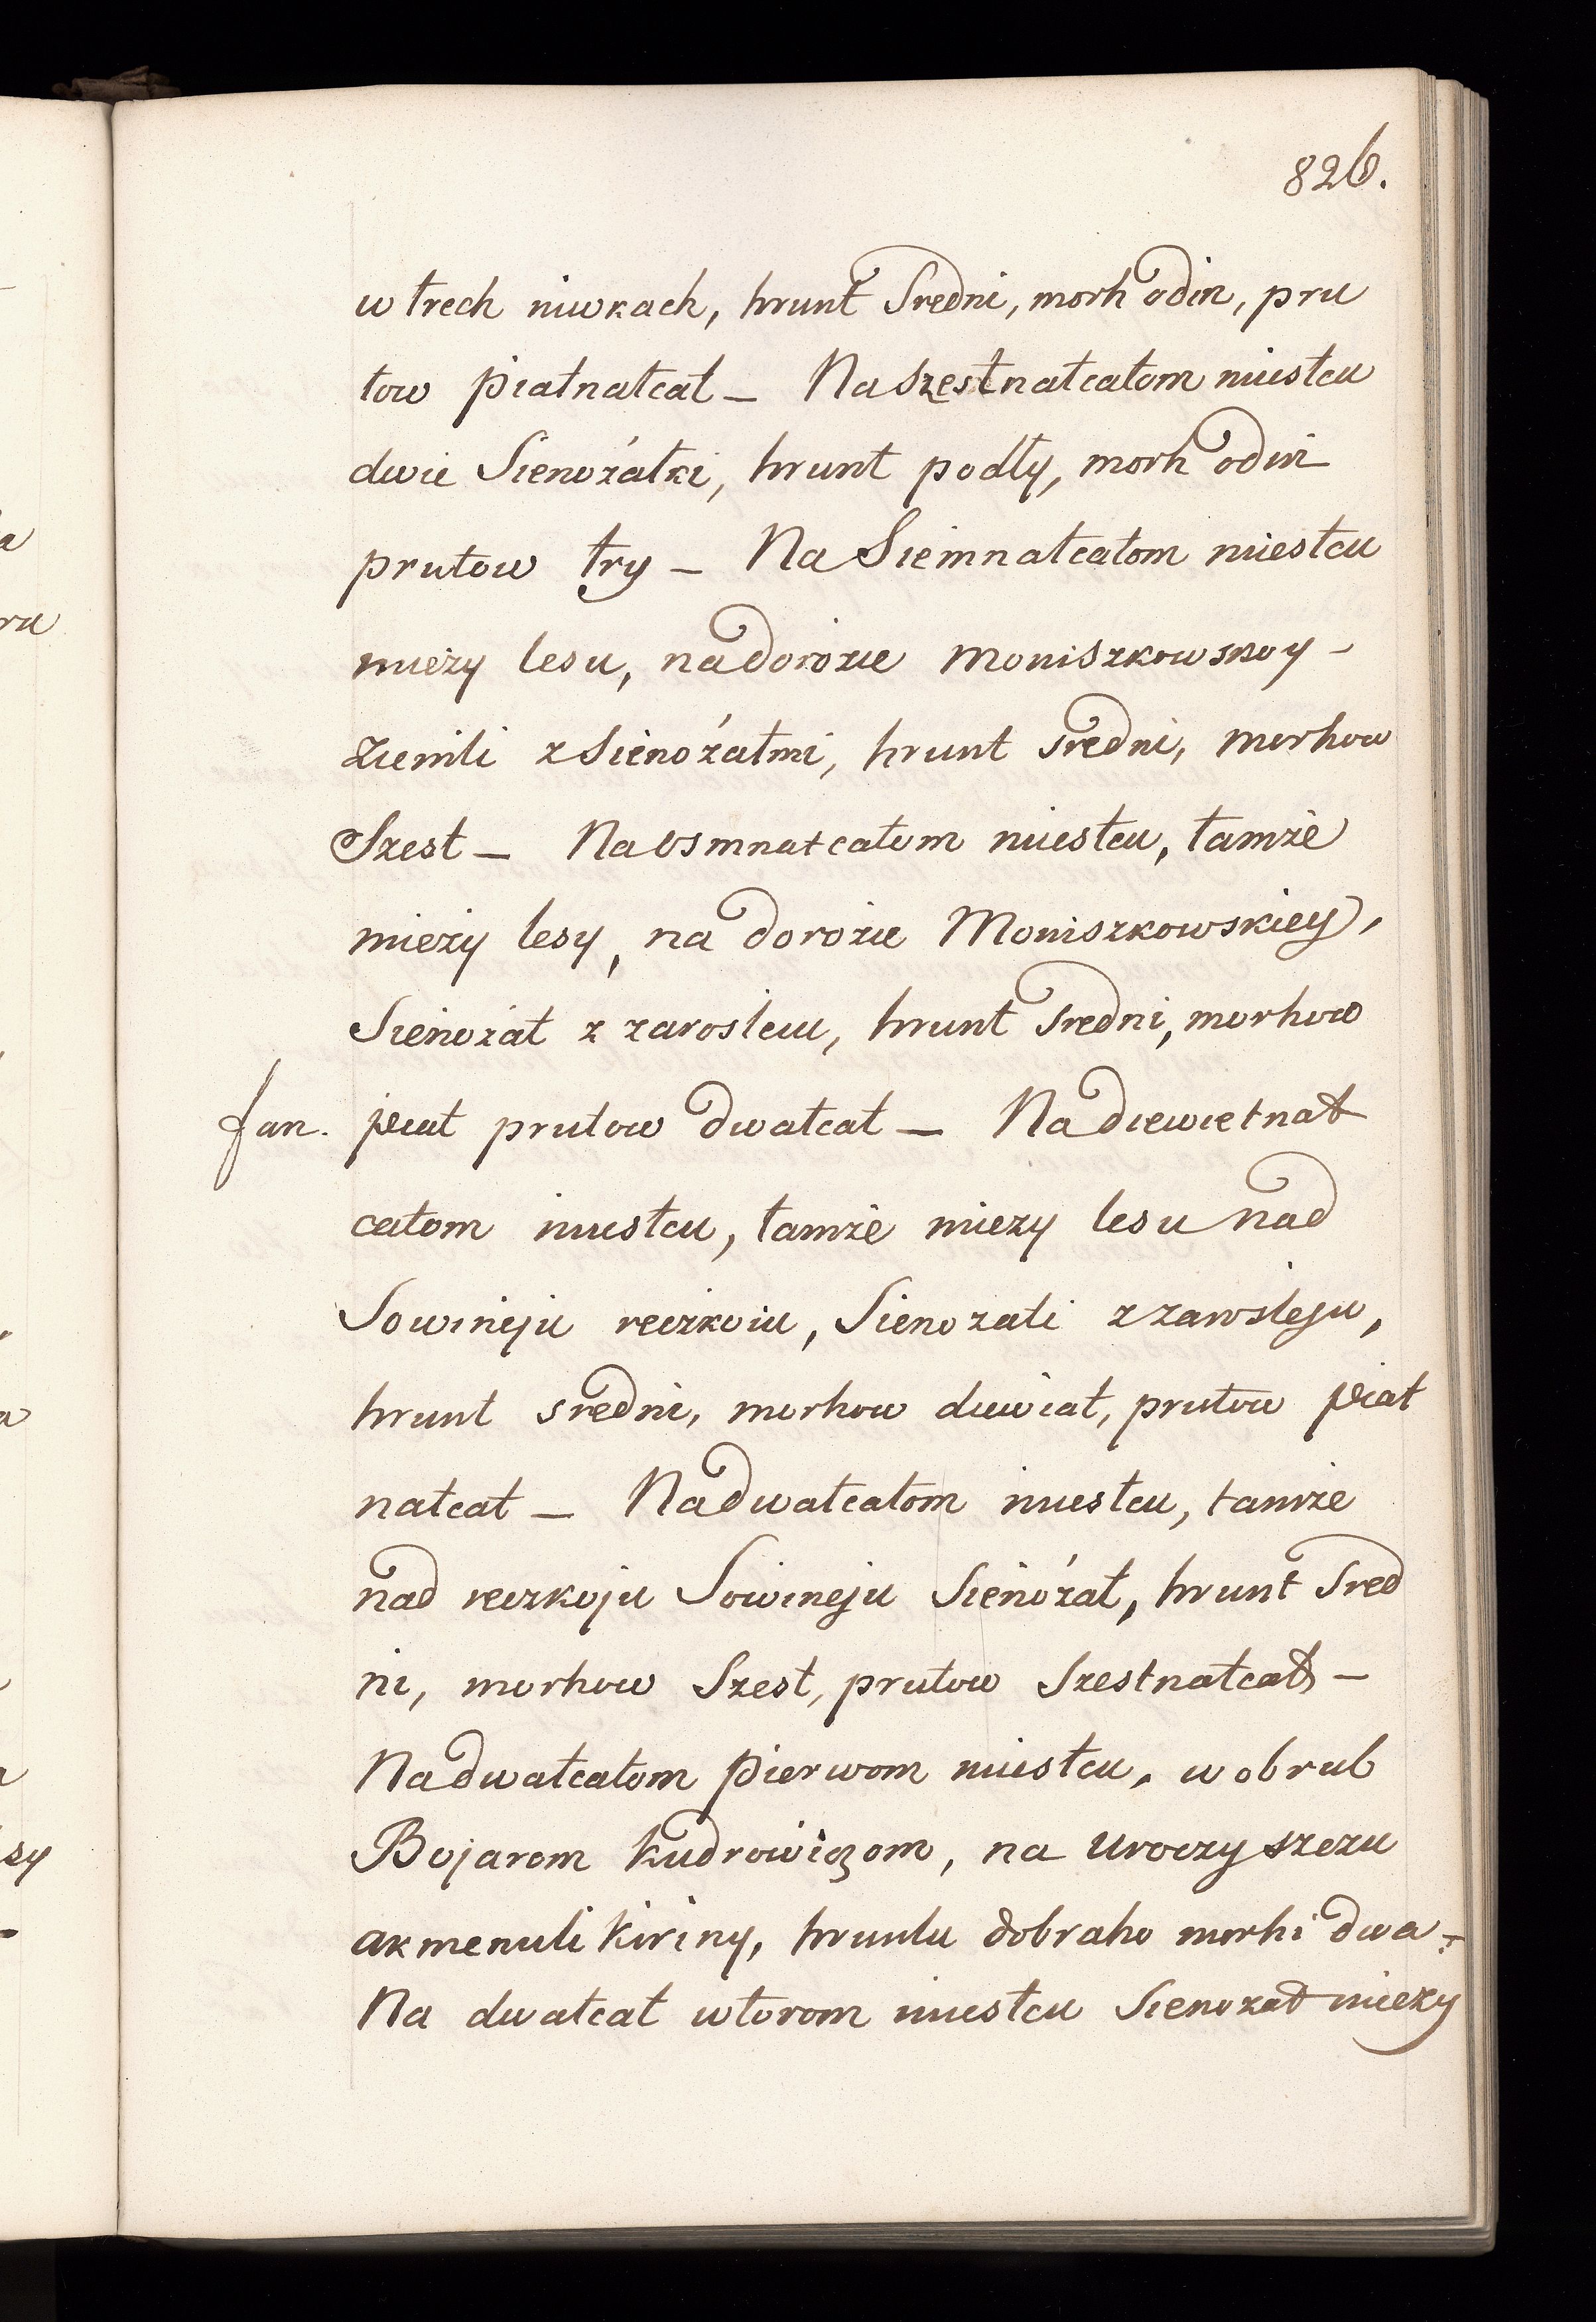 826.
w trech niwkach, hrunt Sredni, morh odin, pru
tow piatnatcat – Na szestnatcatom miestcu
dwie Sienożatki, hrunt podły, morh odin
prutow try – Na Siemnatcatom miestcu
mieży lesu, na dorozie Moniszkowskoy –
ziemli z Sienożatmi, hrunt sredni, morhow
Szest – Na osmnatcatom miestcu, tamże
mieży lesy, na dorozie Moniszkowskiey,
Sienożat z zaroslem, hrunt sredni, morhow
fan. piat prutow dwatcat – Na diewietnat
catom miestcu, tamże miezy lesu nad
Sowineju reczkoiu, Sienozati z zarosleju,
hrunt sredni, morhow diewiat, prutow piat
natcat – Na dwatcatom miestcu, tamże
nad reczkoju Sowineju Sienożat, hrunt Sred
ni, morhow Szest, prutow Szestnatcat –
Na dwatcatom pierwom miestcu, w obrub
Bojarom Kudrowiczom, na uroczyszczu
akmenuli Kiriny, hruntu dobraho morhi dwa –
Na dwatcat wtorom miestcu Sienozat miezy